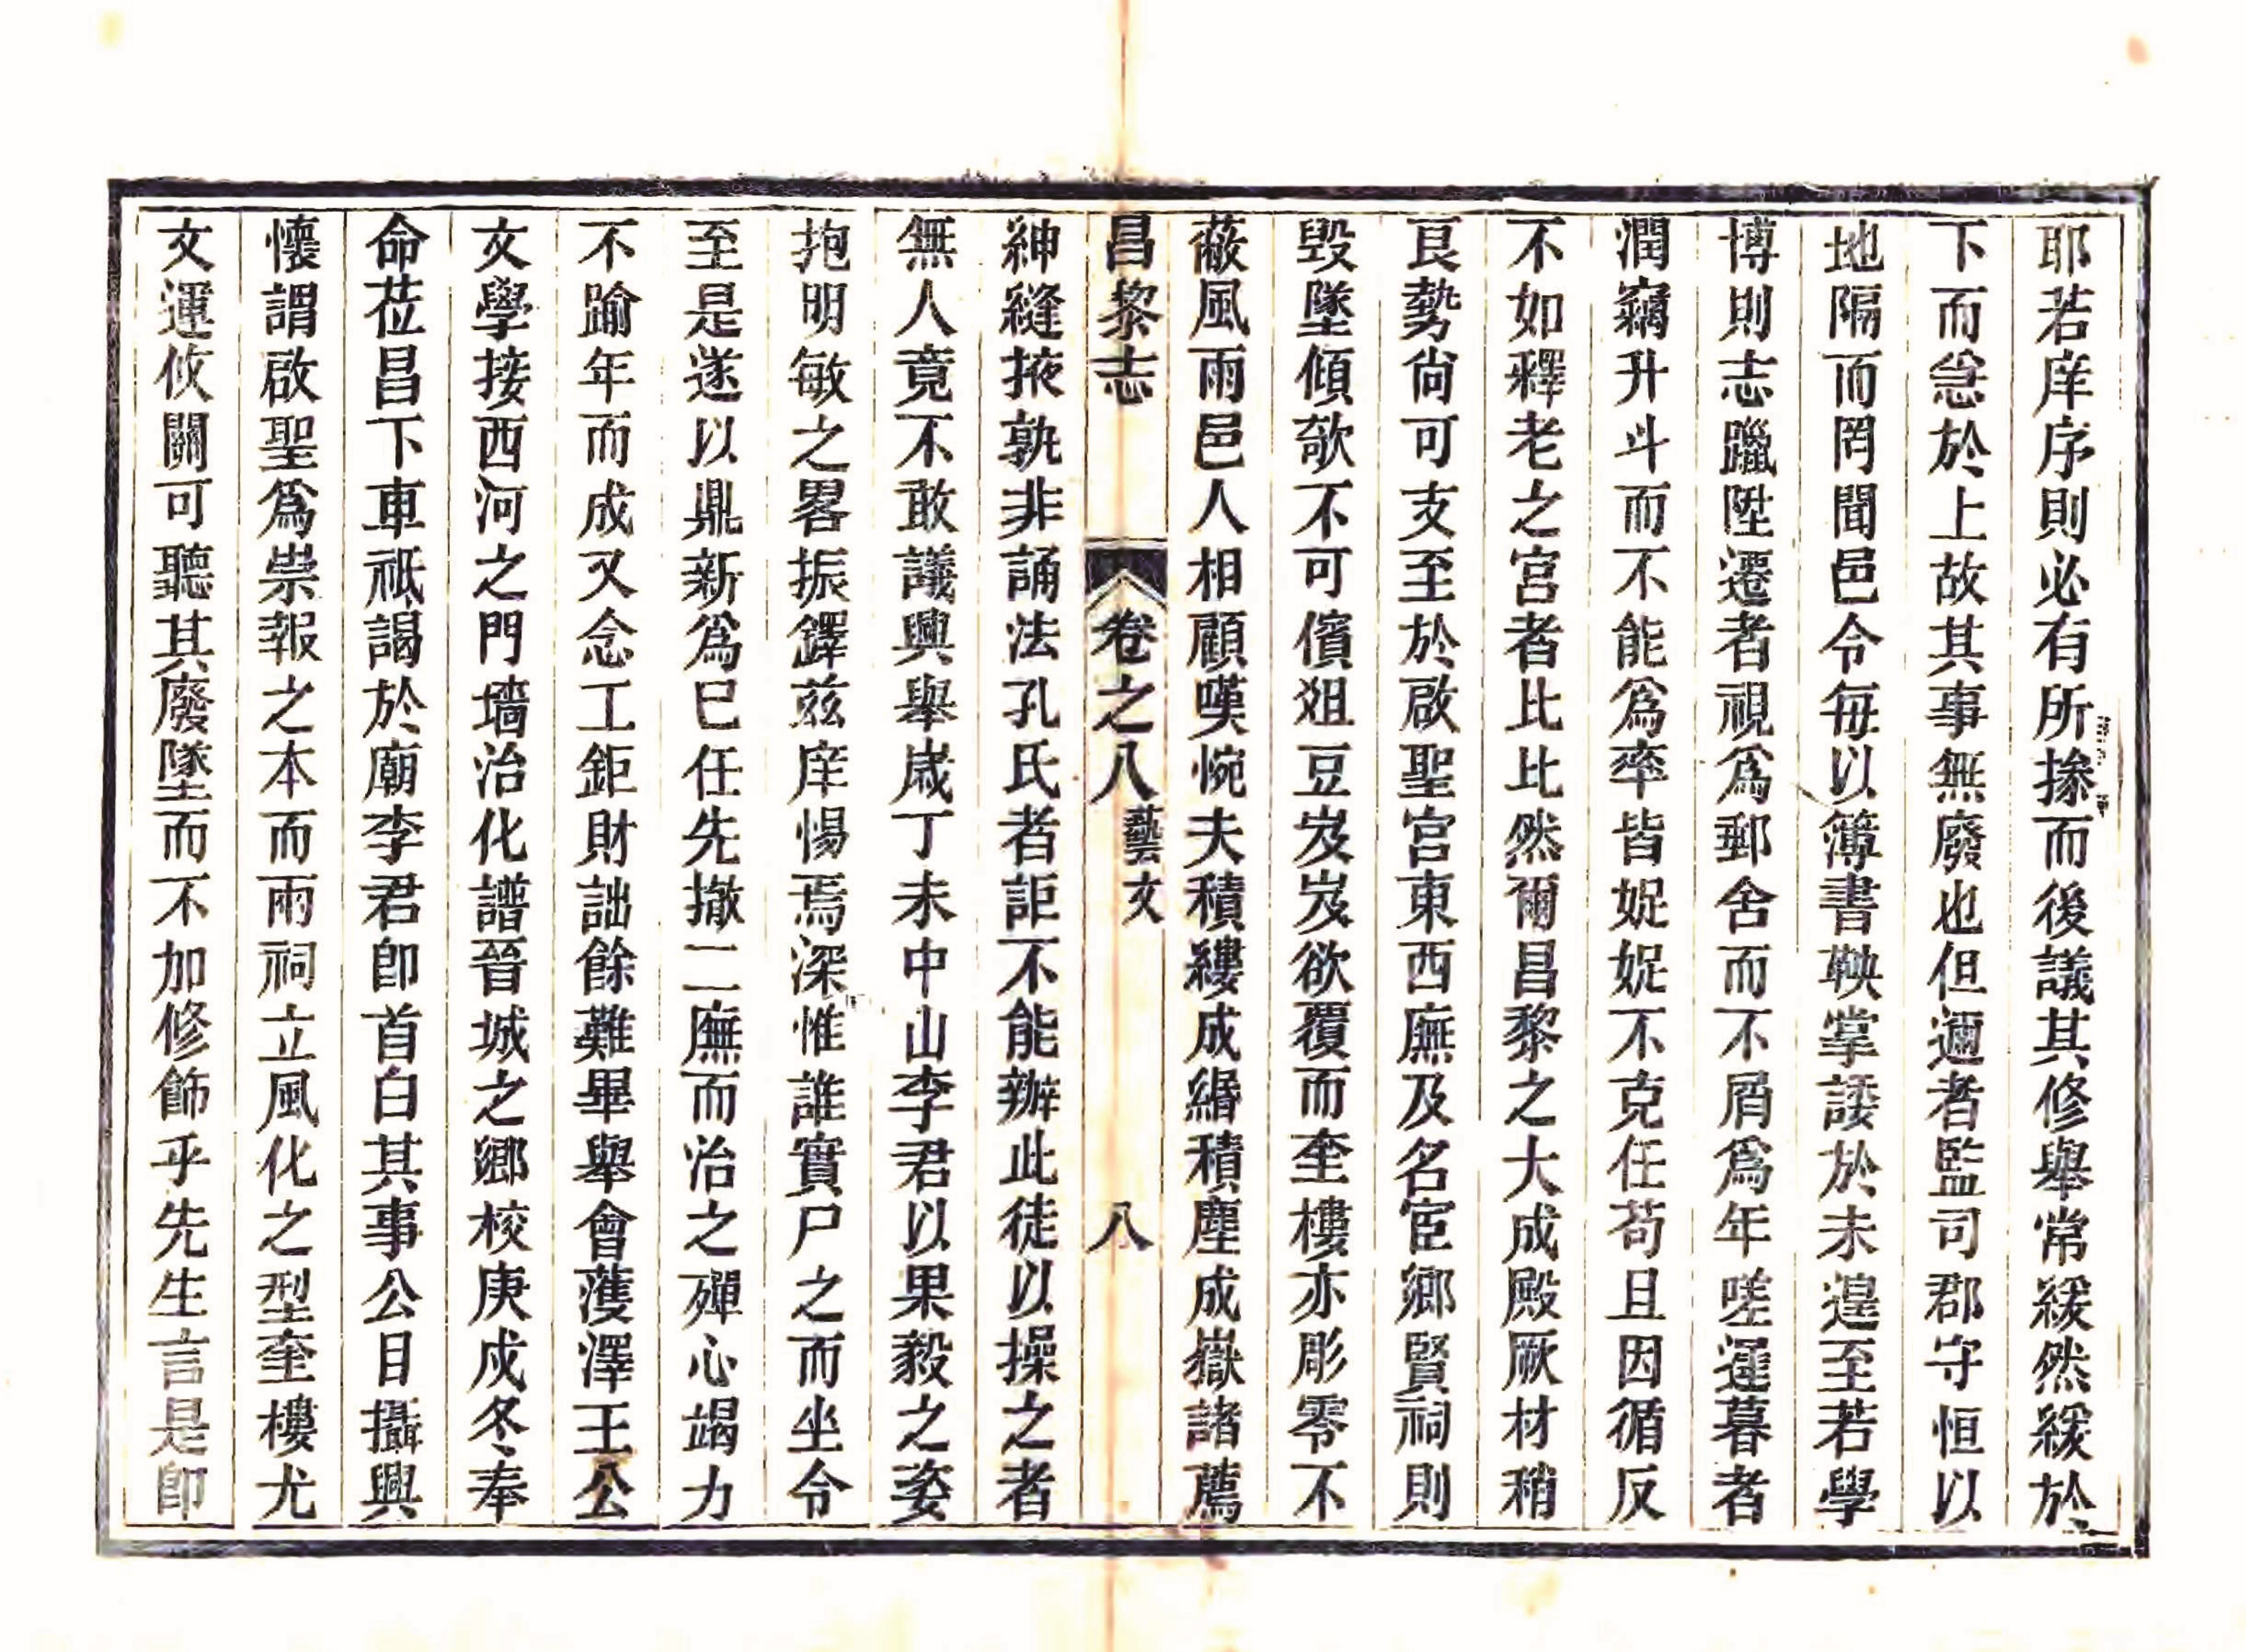 耶若庠序則必有所摻而後議其修舉常緩然緩於
下而急於上故其事無廢也但邇者監司郡守恒以
地隔而罔聞邑令每以簿書鞅掌諉於未遑至若學
博則志躐陞遷者視爲郵舍而不屑爲年嗟遲暮者
潤竊升斗而不能爲卒皆妮妮不克任苟且因循反
不如釋老之宮者比比然爾昌黎之大成殿厥材稍
良勢尚可支至於啟聖宮東西廡及名宦鄉賢祠則
毀墜傾欹不可儐俎豆岌岌欲覆而奎樓亦彫零不
蔽風雨邑人相顧嘆惋夫積縷成緡積塵成嶽諸薦
昌黎志 卷之八 藝文 八
紳縫掖孰非誦法孔氏者詎不能辦此徒以操之者
無人竟不敢議興舉歲丁未中山李君以果毅之姿
抱明敏之畧振鐸茲庠惕焉深惟誰實尸之而坐令
至是遂以鼎新爲已任先撤二廡而治之殫心竭力
不踰年而成又念工鉅財詘餘難畢舉會蒦澤王公
文學接西河之門墻治化譜晉城之鄉校庚戌冬奉
命莅昌下車祗謁於廟李君卽首白其事公目攝興
懷謂啟聖爲崇報之本而兩祠立風化之型奎樓尤
文運攸關可聽其廢墜而不加修飾乎先生言是卽